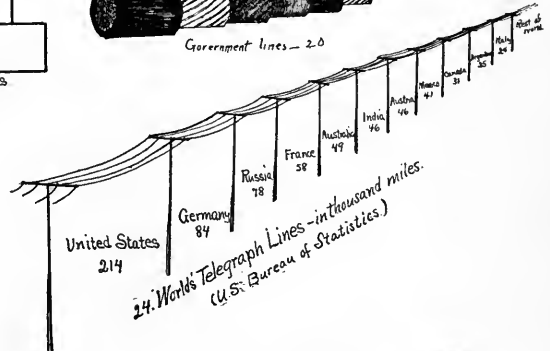 Government lines — 20
s
United States
214
Germany
84
Russia
78
France
58
Australia
49
India
46
Austria
46
Mexico
41
Canada
35
Argentina
25
Italy
Rest of
world
24. World's Telegraph Lines - in thousand miles.
(U.S. Bureau of Statistics.)